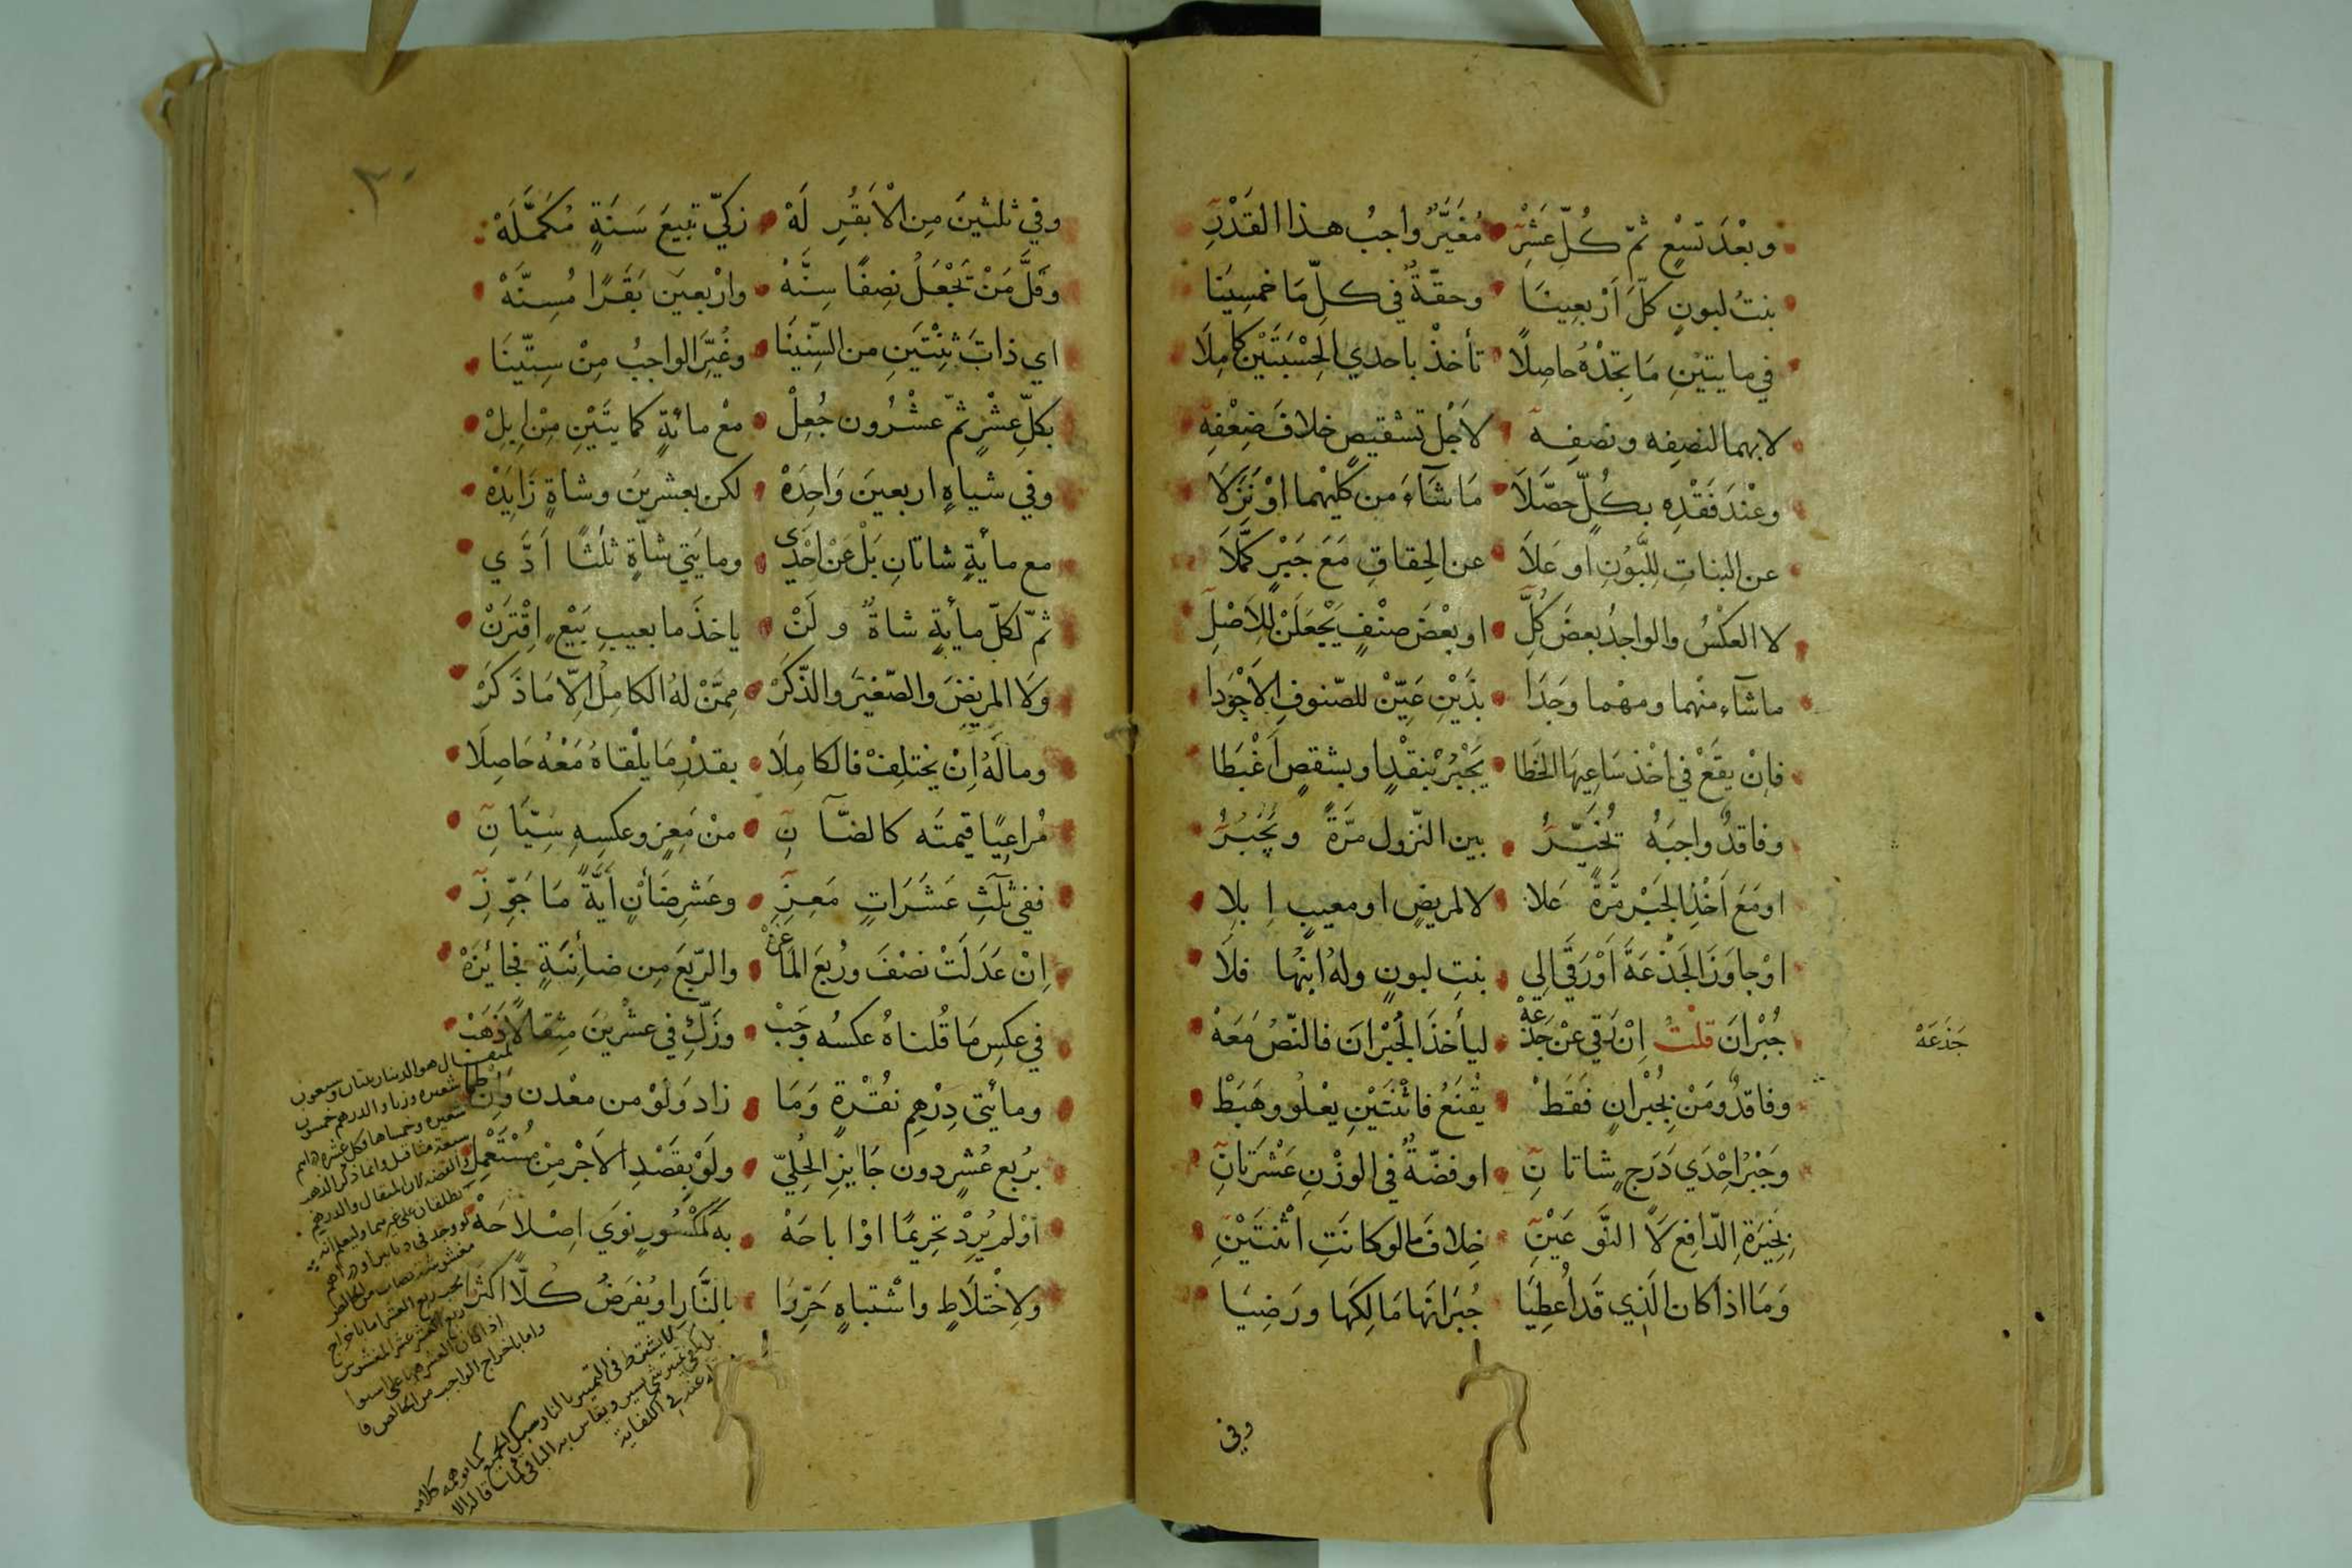 وبعْدَ تسْعٍ ثمّ كُلِّ عَشْرِ • مُغَيَّرٌ واجبُ هذا القَدْرِ
بنتُ لبونٍ كلَّ أرْبعِينَا • وحقّةٌ في كلِّ مَا خمسِينَا
في مايتيْنِ مَا تجِدْهُ حاصِلًا • تأخذْ باحدي الحِسْبَتَيْنِ كامِلَا
لابهما لنصِفِه ونصفِهِ • لاَجْل تشْقيصٍ خلافَ ضِعْفِهِ
وعْندَ فَقْدِهِ بكُلٍّ حصَّلَا • مَا شَآءَ من كليْهما اوْ نَزَلَا
عن البناتِ لِلَّبُونِ او عَلاَ • عن الحِقاقِ مَعَ جَبْرٍ كَمَّلَا
لا العكْسُ والواجدُ بعضَ كُلِّ • او بعْضَ صنْفٍ يجْعَلَنْ للاَصْلِ
ماشآء منْهما ومهْما وجَدَا • بذَيْنِ عَيّنْ للصّنوفِ الاَجْوَدا
فإنْ يقَعْ في اخْذ سَاعِيهَا الخَطا • يَجْبُرْ بنقْدٍ او بشقصٍ اَغْبَطا
وفاقدٌ واجبَهُ تُخيّرُ • بين النّزول مرّةً ويُجْبُرُ
اومَعَ اَخْذِ الجَبْر مَّرةً عَلا • لا لمريضٍ او معيبٍ اِبلِا
اوْ جاوَزَ الجَذْعَةَ اَوْ رَقَي الي • بنتِ لبونٍ ولهُ ابنُها فلَا
جُبْرانَ قلْتُ اِنْ رَقي عنْ جَذَعَهْ • ليأخذَ الجُبْرانَ فالنّصُ مَعَهْ
جَذَعَهْ
وفاقدٌ ومَنْ بجُبْرانٍ فَقَطْ • يقْنَعُ فاثْنَتَيْنِ يعْلُو وهَبَطْ
وَجَبْرُ احْدَي دَرَجٍ شاتانِ • او فضّةٌ في الوزْنِ عَشْرَتانِ
بِخيَرَةِ الدّافع لَا النَّوعَيْنِ • خِلافَ مالو كانَتِ اثْنتَيْنِ
وَمَا اذا كان الَّذِي قَد اُعطِيَا • جُبَرانَها مَالِكَها ورَضِيَا
وفي
٢٠
وفي ثلثينَ مِن الْأبقُرِ لَهْ • زكّي تبيعَ سَنَةٍ مُكمَّلَهْ
وقَلَّ مَنْ يَجْعَلُ نصِفًا سِنَّهْ • وارْبعينَ بَقَرًا مُسِنَّهْ
اي ذاتَ ثِنْتَينِ من السّنِينَا • وغُيِّرَ الواجبُ مِنْ سِتّينَا
بكلِّ عشْرٍ ثمّ عشْرُون جُعِلْ • معْ مائةٍ كمايتَيْنِ مِنْ ابِلْ
وفي شياهٍ اربعينَ وَاحِدَهْ • لكن بعشرينَ وشاةٍ زَايِدَهْ
مع مايةٍ شاتانِ بَلْ عَنْ احْدَي • ومايَتي شاةٍ ثلثًا اَدِّي
ثمّ لكلّ مايةٍ شاةٌ ولَنْ • ياخذَ ما بعيبِ بَيْعٍ اِقْترَنْ
وَلَا المريضَ والصّغيَر والذّكَرْ • مِمَّنْ لهُ الكامِلُ الّا مَا ذَكَرْ
ومالَهُ اِنْ يختلِفْ فالكامِلَا • بقدْرِ مَا يلْقاهُ مَعْهُ حَاصِلَا
مُراعِيًا قيمتَه كالضَّآنِ • منْ مَعِزٍ وعكسِهِ سِيّانِ
ففي ثلثِ عَشَرَاتِ مَعِزِ • وعَشرِ ضَأنٍ أيَّةً مَا جَوّزِ
اِنْ عَدَلَتْ نصْفَ ورُبعَ الماعِزَهْ • والرّبعَ مِن ضائِنةٍ فجائزَهْ
في عكسِ مَا قُلناهُ عكسُه وَجَبْ • وزَكِّ في عشْرينَ مِثقالًا ذَهَبْ
ومائتَي دِرْهمِ نقْرةٍ وَمَا • زاد وَلَوْ من معْدن وانْ طما
برُبع عُشرٍ دون جَايزِ الحُلِيّ • ولَوْ بقَصْدِ الاَجْرِ مِنْ مُسْتَعْمِلِ
اوْ لم يُرِدْ تحرِيمًا اوْ اباحَهْ • بهِ كمكْسُورٍ نوَي اصْلاحَهْ
ولاِخْتلاَطٍ واشْتباهٍ حَرِّرا • بالنَّارِ او يُفرَضُ كُلًّا اكثَرا
المثقال هو الدينار بثتان وسبعون
شعيرة وزنا والدرهم خمسون
شعيرة وخمساها وكل عشرة دراهم
سبعة مثاقيل وانما ذكر الذهب
والفضة لان المثقال والدرهم
يطلقان على غيرهما وليعلم انه
لو وجد في دنانير او دراهم